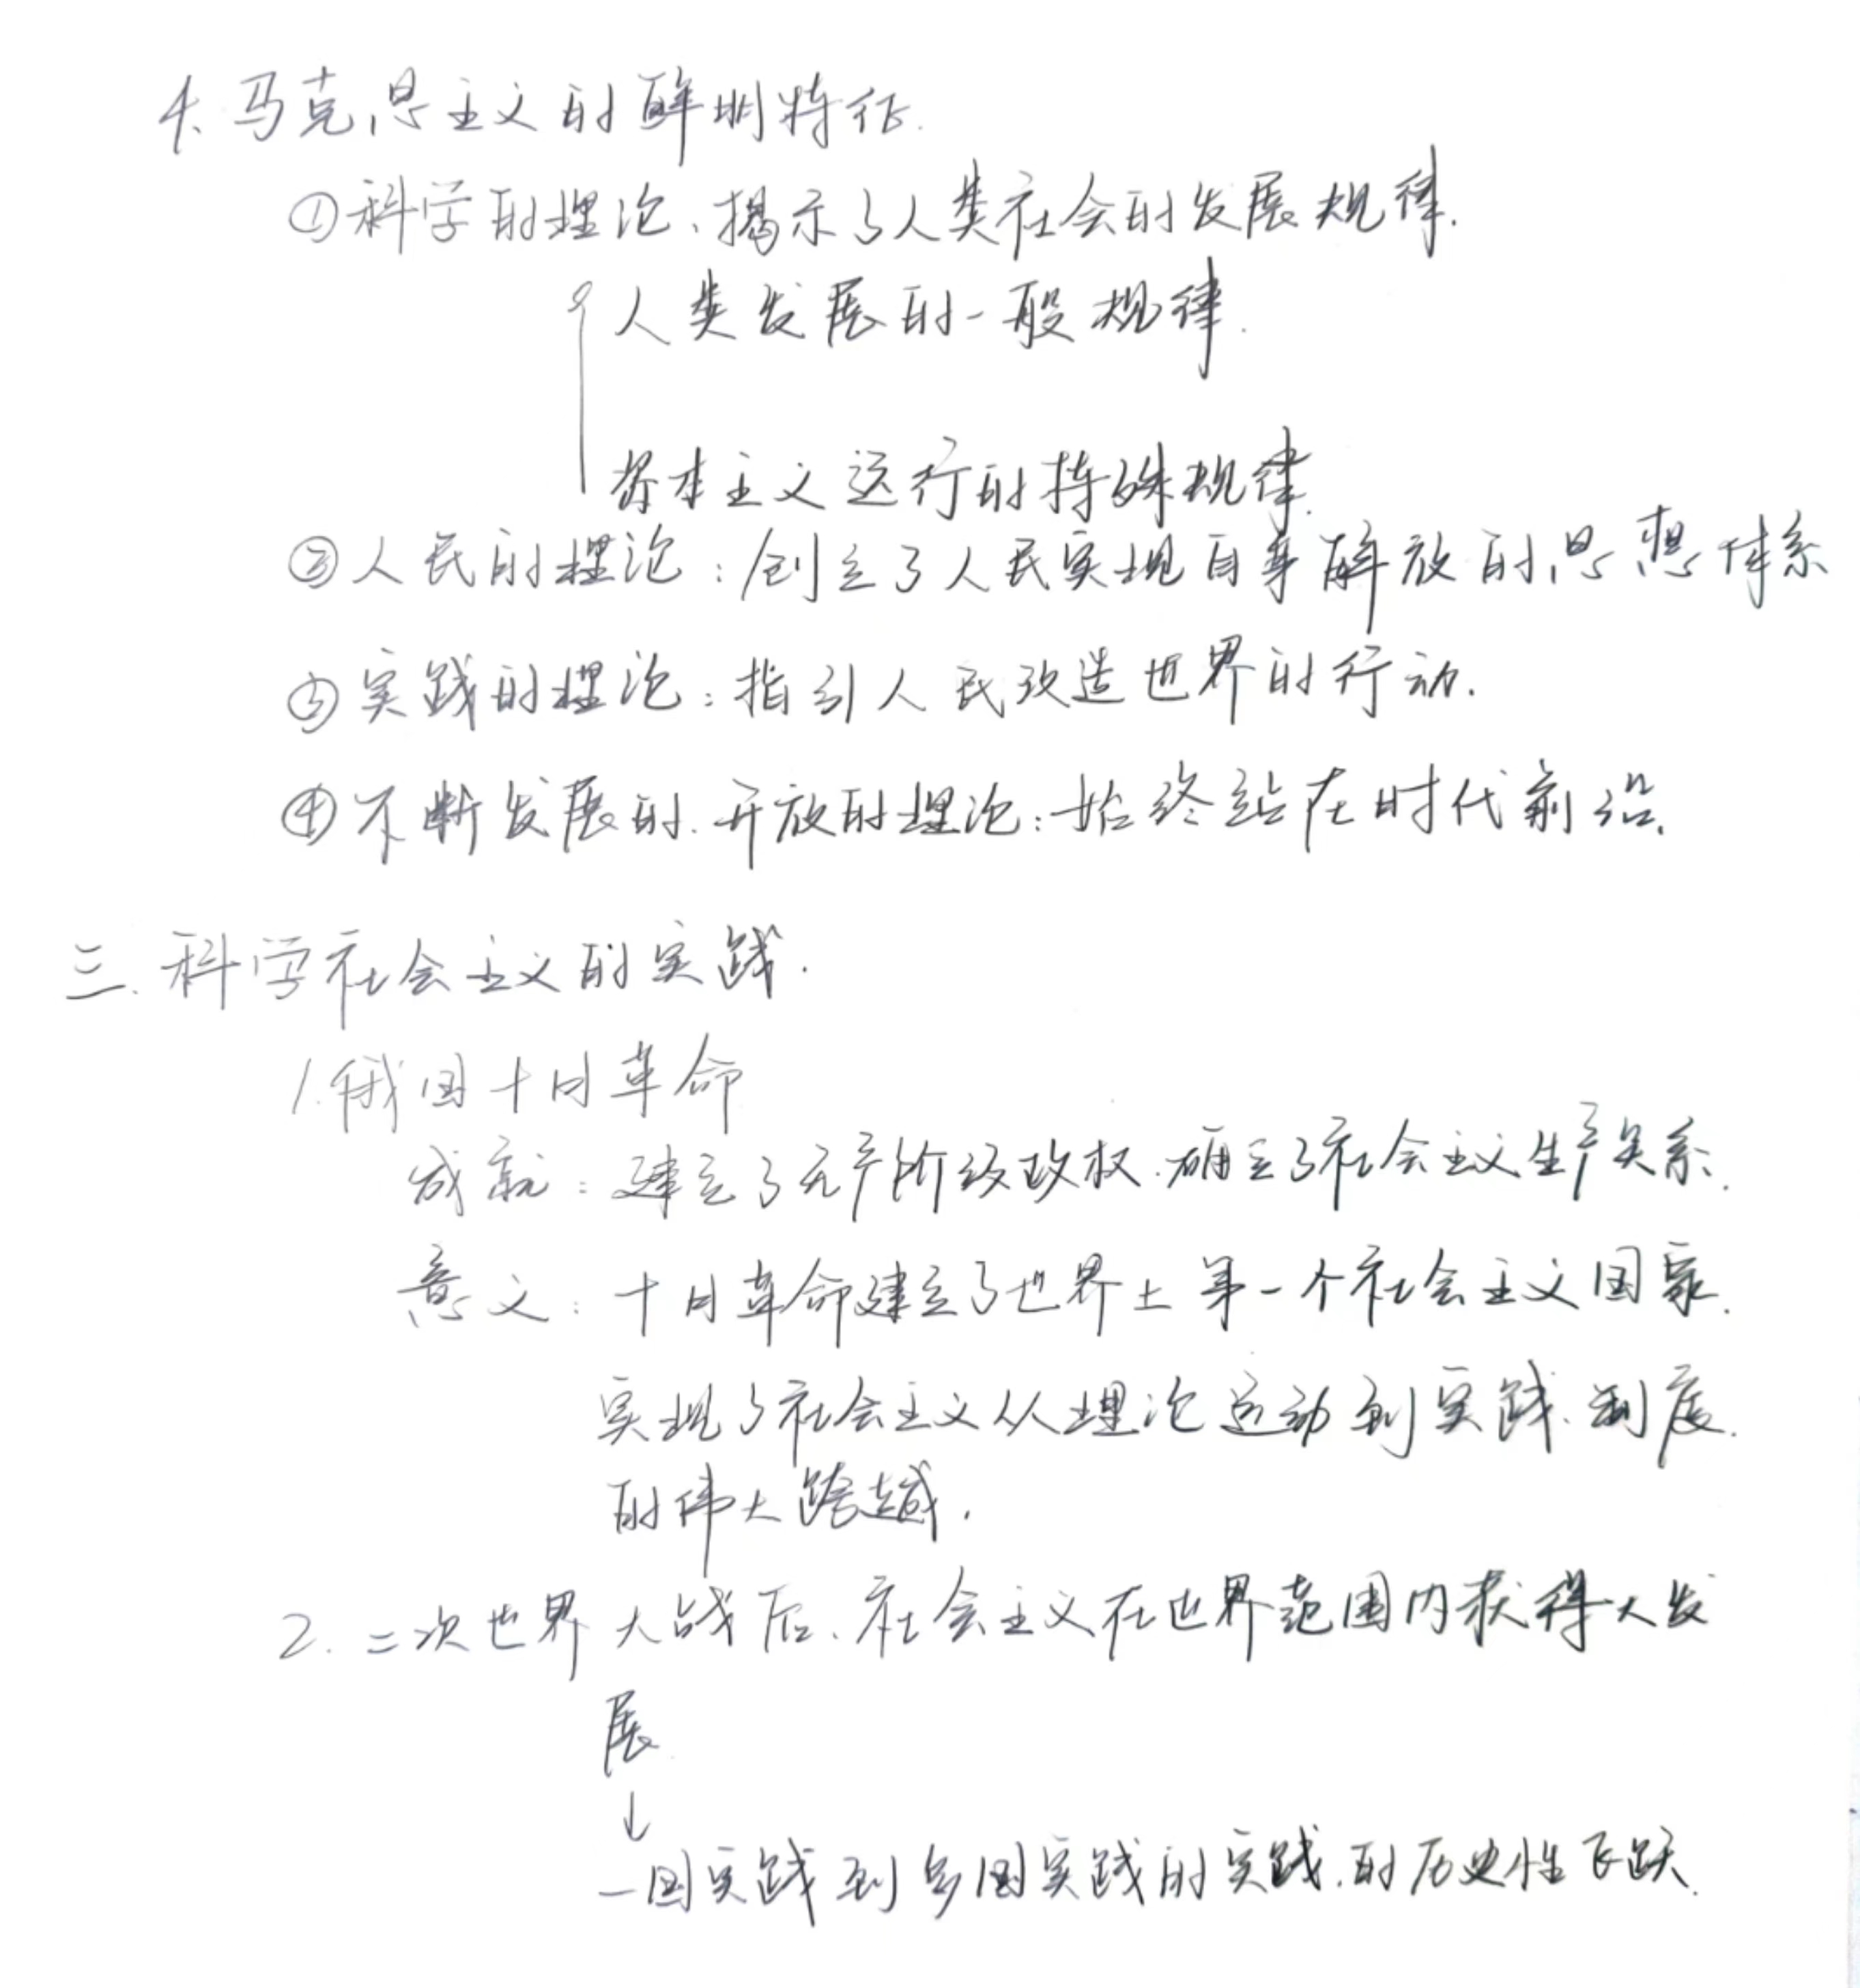 4.马克思主义的鲜明特征.
①科学的理论、揭示了人类社会的发展规律.
人类发展的一般规律.
资本主义运行的特殊规律.
②人民的理论:创立了人民实现自身解放的思想体系
③实践的理论:指引人民改造世界的行动.
④不断发展的.开放的理论:始终站在时代前沿.
三.科学社会主义的实践.
1.俄国十月革命
成就:建立了无产阶级政权.确立了社会主义生产关系.
意义:十月革命建立了世界上第一个社会主义国家.
实现了社会主义从理论运动到实践、制度.
的伟大跨越.
2.二次世界大战后.社会主义在世界范围内获得大发
展
↓
一国实践到多国实践的实践.的历史性飞跃.